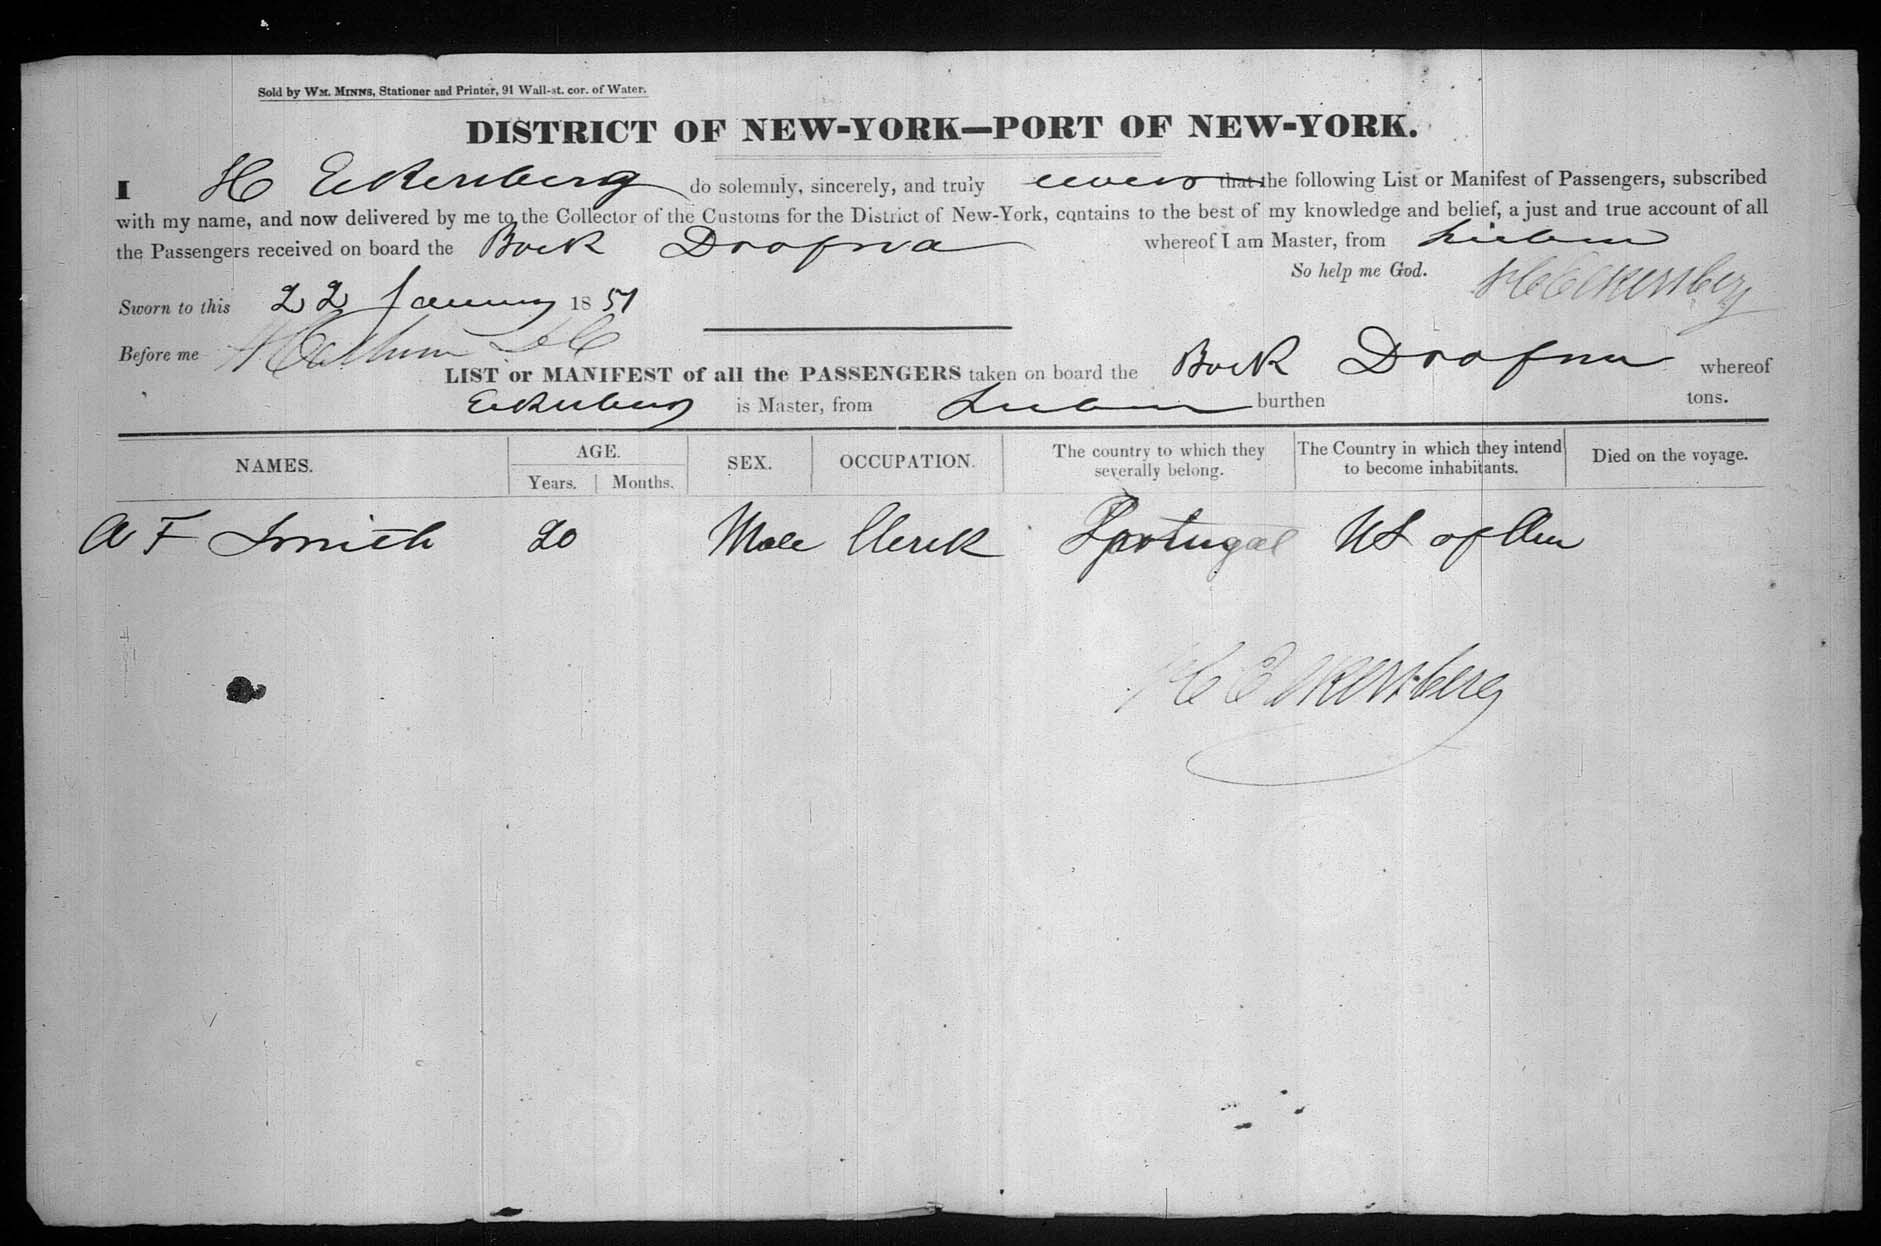 Sold by WM. MINNS, Stationer and Printer, 91 Wall-st. cor. of Water.
DISTRICT OF NEW-YORK—PORT OF NEW-YORK.
I H Eckersberg do solemnly, sincerely, and truly that the following List or Manifest of Passengers, subscribed
with my name, and now delivered by me to the Collector of the Customs for the District of New-York, contains to the best of my knowledge and belief, a just and true account of all
the Passengers received on board the Bark whereof I am Master, from
So help me God. H Eckersberg
Sworn to this 22 January 1851
Before me
LIST or MANIFEST of all the PASSENGERS taken on board the Bark whereof
Eckersberg is Master, from burthen tons.
NAMES. AGE. Years. Months. SEX. OCCUPATION. The country to which they severally belong. The Country in which they intend to become inhabitants. Died on the voyage.
A F Smith 20 Male Clerk Portugal US of Am
H Eckersberg